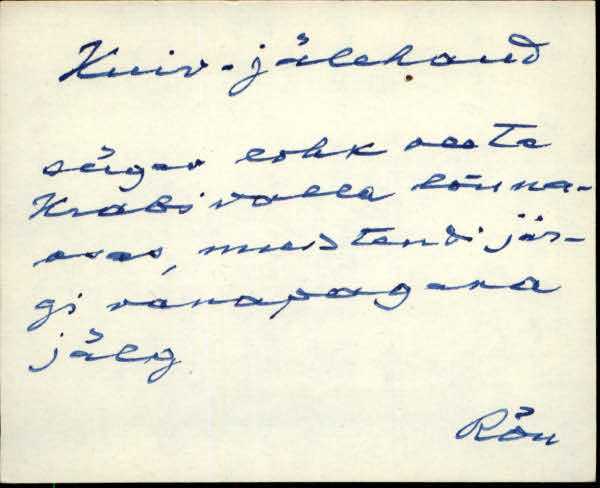 Kuiv-jälehaud
sügav lohk
Krabi valla lõuna-
osas, muistendi jär-
gi vanapagana
jälg
Rõu